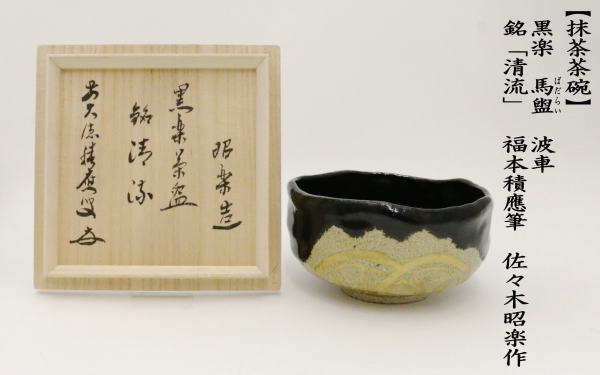 【抹茶茶碗】
黒楽 馬盥 波車
ばだらい
銘「清流」 福本積應筆 佐々木昭楽作
昭楽造
黒楽茶盌
銘 清流
前大徳積應叟